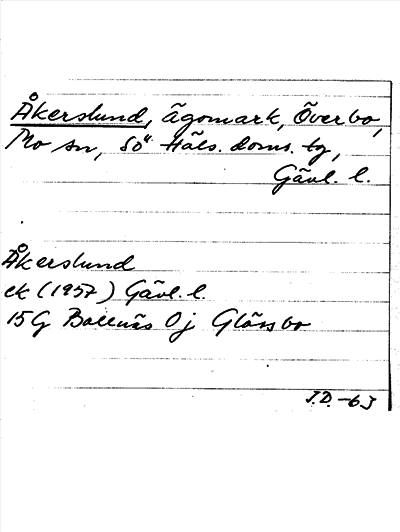 Åkerslund, ägomark, Överbo,
Mo sn, Sö Häls. doms. tg,
Gävl. l.
Åkerslund
ek (1957) Gävl. l.
15G Bollnäs 0j Glössbo
I.D. -63